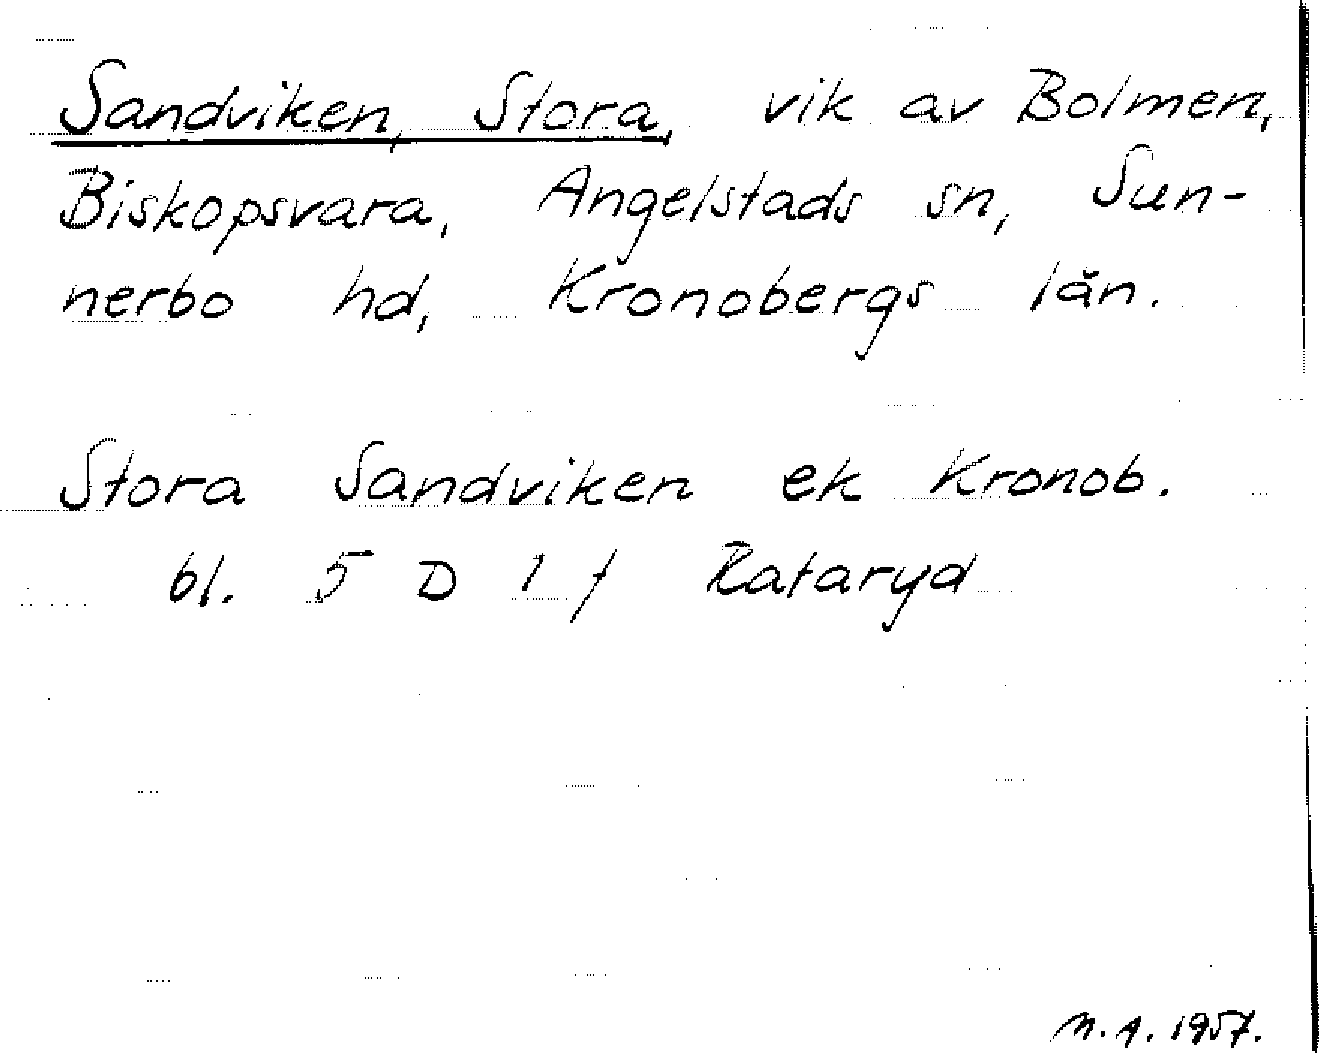 Sandviken, Stora, vik av Bolmen,
Biskopsvara, Angelstads sn, Sun-
nerbo hd, Kronobergs län.
Stora Sandviken ek Kronob.
bl. 5 D 1 f Rataryd
M.A. 1957.